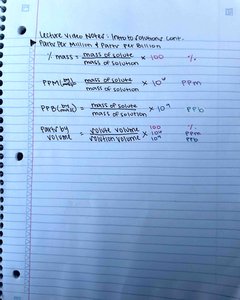 Lecture Video Notes: Intro to Solutions Cont.
Parts Per Million & Parts Per Billion
% mass = mass of solute / mass of solution × 100 %
PPM (by mass) = mass of solute / mass of solution × 10⁶ PPm
PPB (by mass) = mass of solute / mass of solution × 10⁹ PPb
Parts by volume = solute volume / solution volume × 100 %
× 10⁶ PPm
× 10⁹ PPb